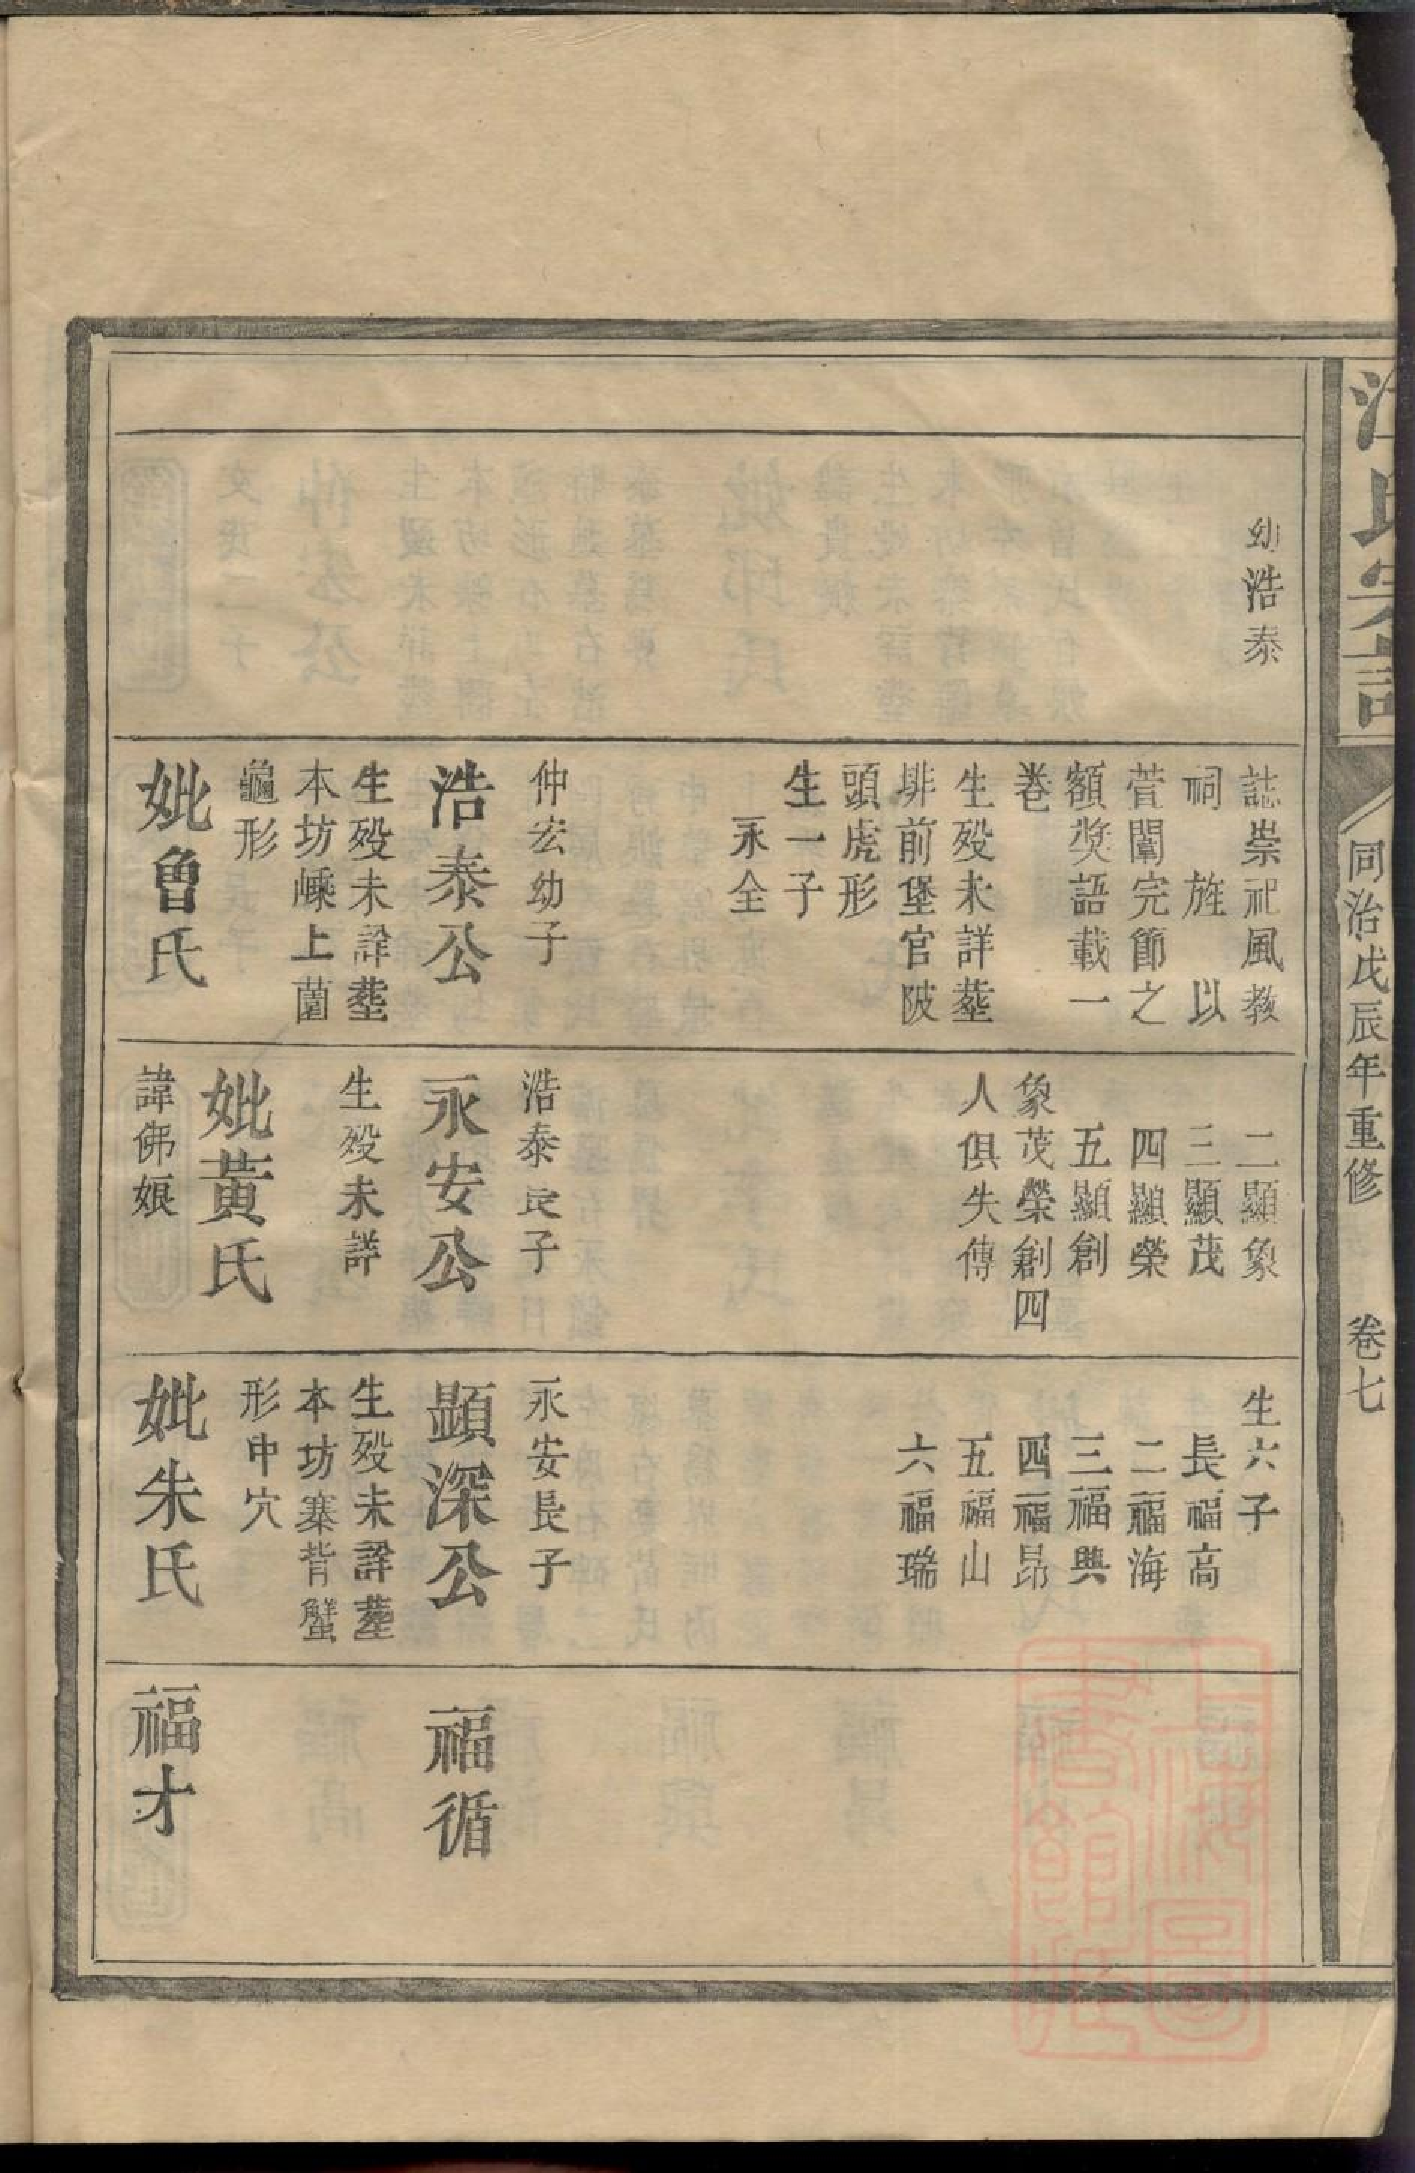 江氏宗譜
同治戊辰年重修
卷七
幼浩泰
誌崇祀風教
祠 旌 以
萱闈完節之
額奖語載一
卷
生殁未詳塟
排前堡官陂
頭虎形
生一子
永全
仲宏幼子
浩泰公
生殁未詳塟
本坊嵊上薗
龜形
妣魯氏
二顯象
三顯茂
四顯榮
五顯創
象茂榮創四
人俱失傳
浩泰長子
永安公
生殁未詳
妣黃氏
諱佛娘
生六子
長福高
二福海
三福興
四福昂
五福山
六福瑞
永安長子
顯深公
生殁未詳塟
本坊寨背蟹
形中穴
妣朱氏
福循
福才
上海图
書館藏